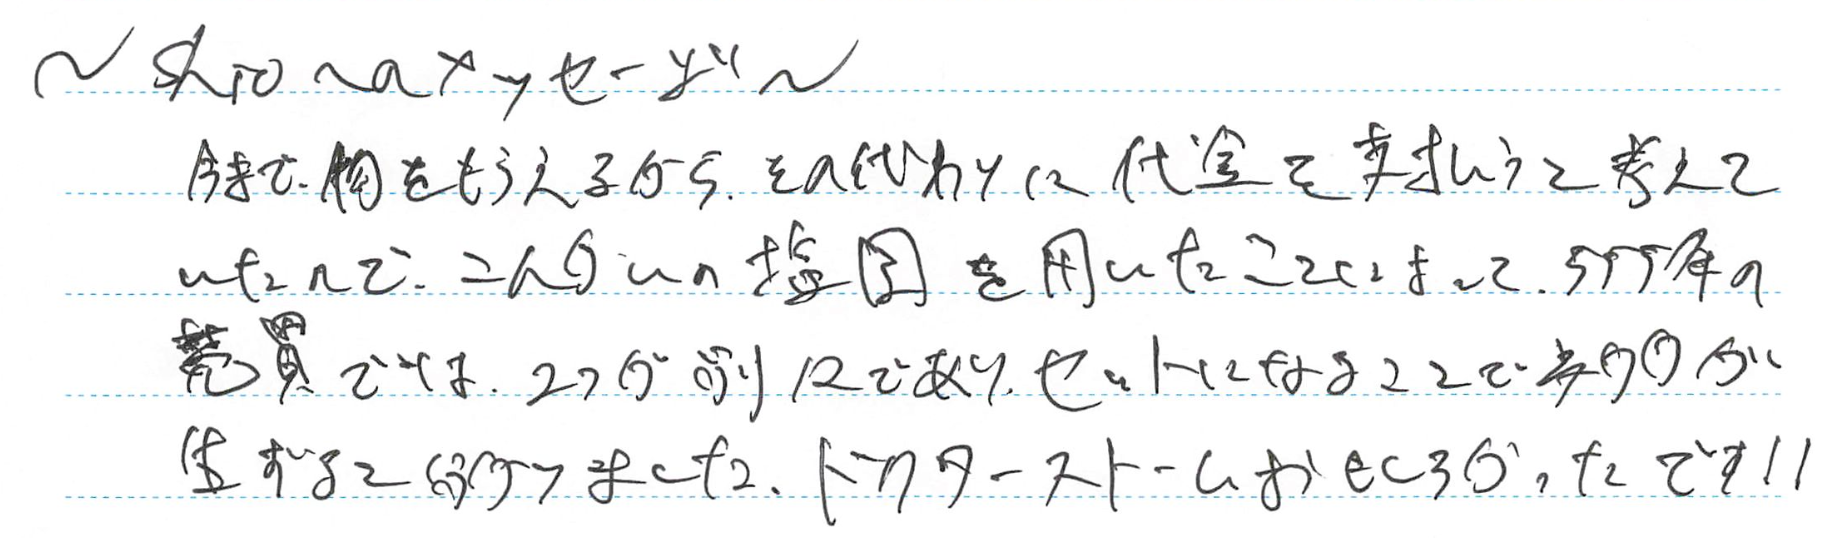 ～ sh10へのメッセージ ～
今まで、物をもらえるから、その代わりに代金を支払うと考えて
いたので、こんかいの 図を用いたことによって、555条の
売買では、2つが別々であり、セットになることで効力が
生ずると分かりました、ドクターストームおもしろかったです!!